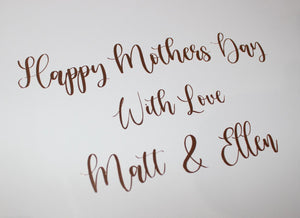 Happy Mothers Day
With Love
Matt & Ellen